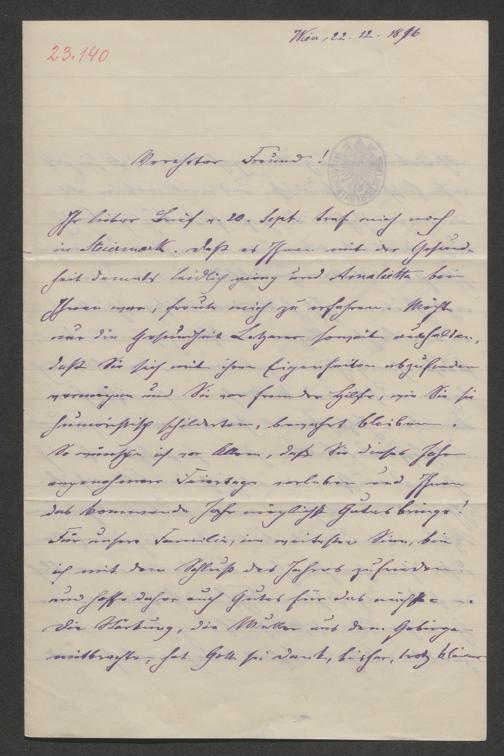 23.140
Wien, 22. 12. 1896
Verehrter Freund!
Ihr lieber Brief v. 20. Sept. traf mich noch
in Steiermark. Daß es Ihnen mit der Gesund-
heit damals leidlich ging und Annaletta bei
Ihnen war, freute mich zu erfahren. Möcht
nur die Gesundheit Letzterer soweit anhalten,
daß Sie sich mit ihren Eigenheiten abzufinden
vermögen und Sie vor fremder Hilfe, wie Sie sie
humoristisch schilderten, bewahrt bleiben.
So wünsche ich vor Allem, daß Sie dieses Jahr
angenehmere Feiertage verleben und Ihnen
das kommende Jahr möglichst Gutes bringe!
Für unsere Familie, im weitesten Sinn, bin
ich mit dem Schluß des Jahres zufrieden
und hoffe daher auch Gutes für das nächste.
Die Stärkung, die Mutter aus dem Gebirge
mitbrachte, hat Gott sei Dank, bisher, trotz kleiner